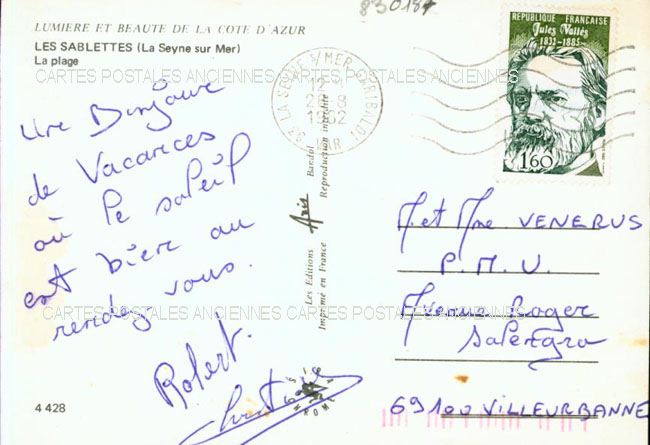 83018*
LUMIERE ET BEAUTE DE LA COTE D'AZUR
LES SABLETTES (La Seyne sur Mer)
La plage
CARTES POSTALES ANCIENNES CARTES POSTALES ANCIENNES
Une Bonjour
de Vacances
où le soleil
est bien au
rendez vous.
Robert.
Christiane
4 428
83 LA SEYNE S/MER-GARIBALDI
12 H
28-8
1982
VAR
Les Editions Aris Bandol
Imprimé en France Reproduction interdite
REPUBLIQUE FRANÇAISE
Jules Vallès
1832-1885
1,60
M et Mme VENERUS
P.M.U.
Avenue Roger
Salengro
CARTES POSTALES ANCIENNES CARTES POSTALES ANCIENNES
69100 VILLEURBANNE